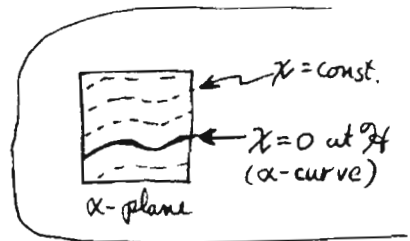 χ = const.
χ = 0 at ℋ
(α-curve)
α-plane